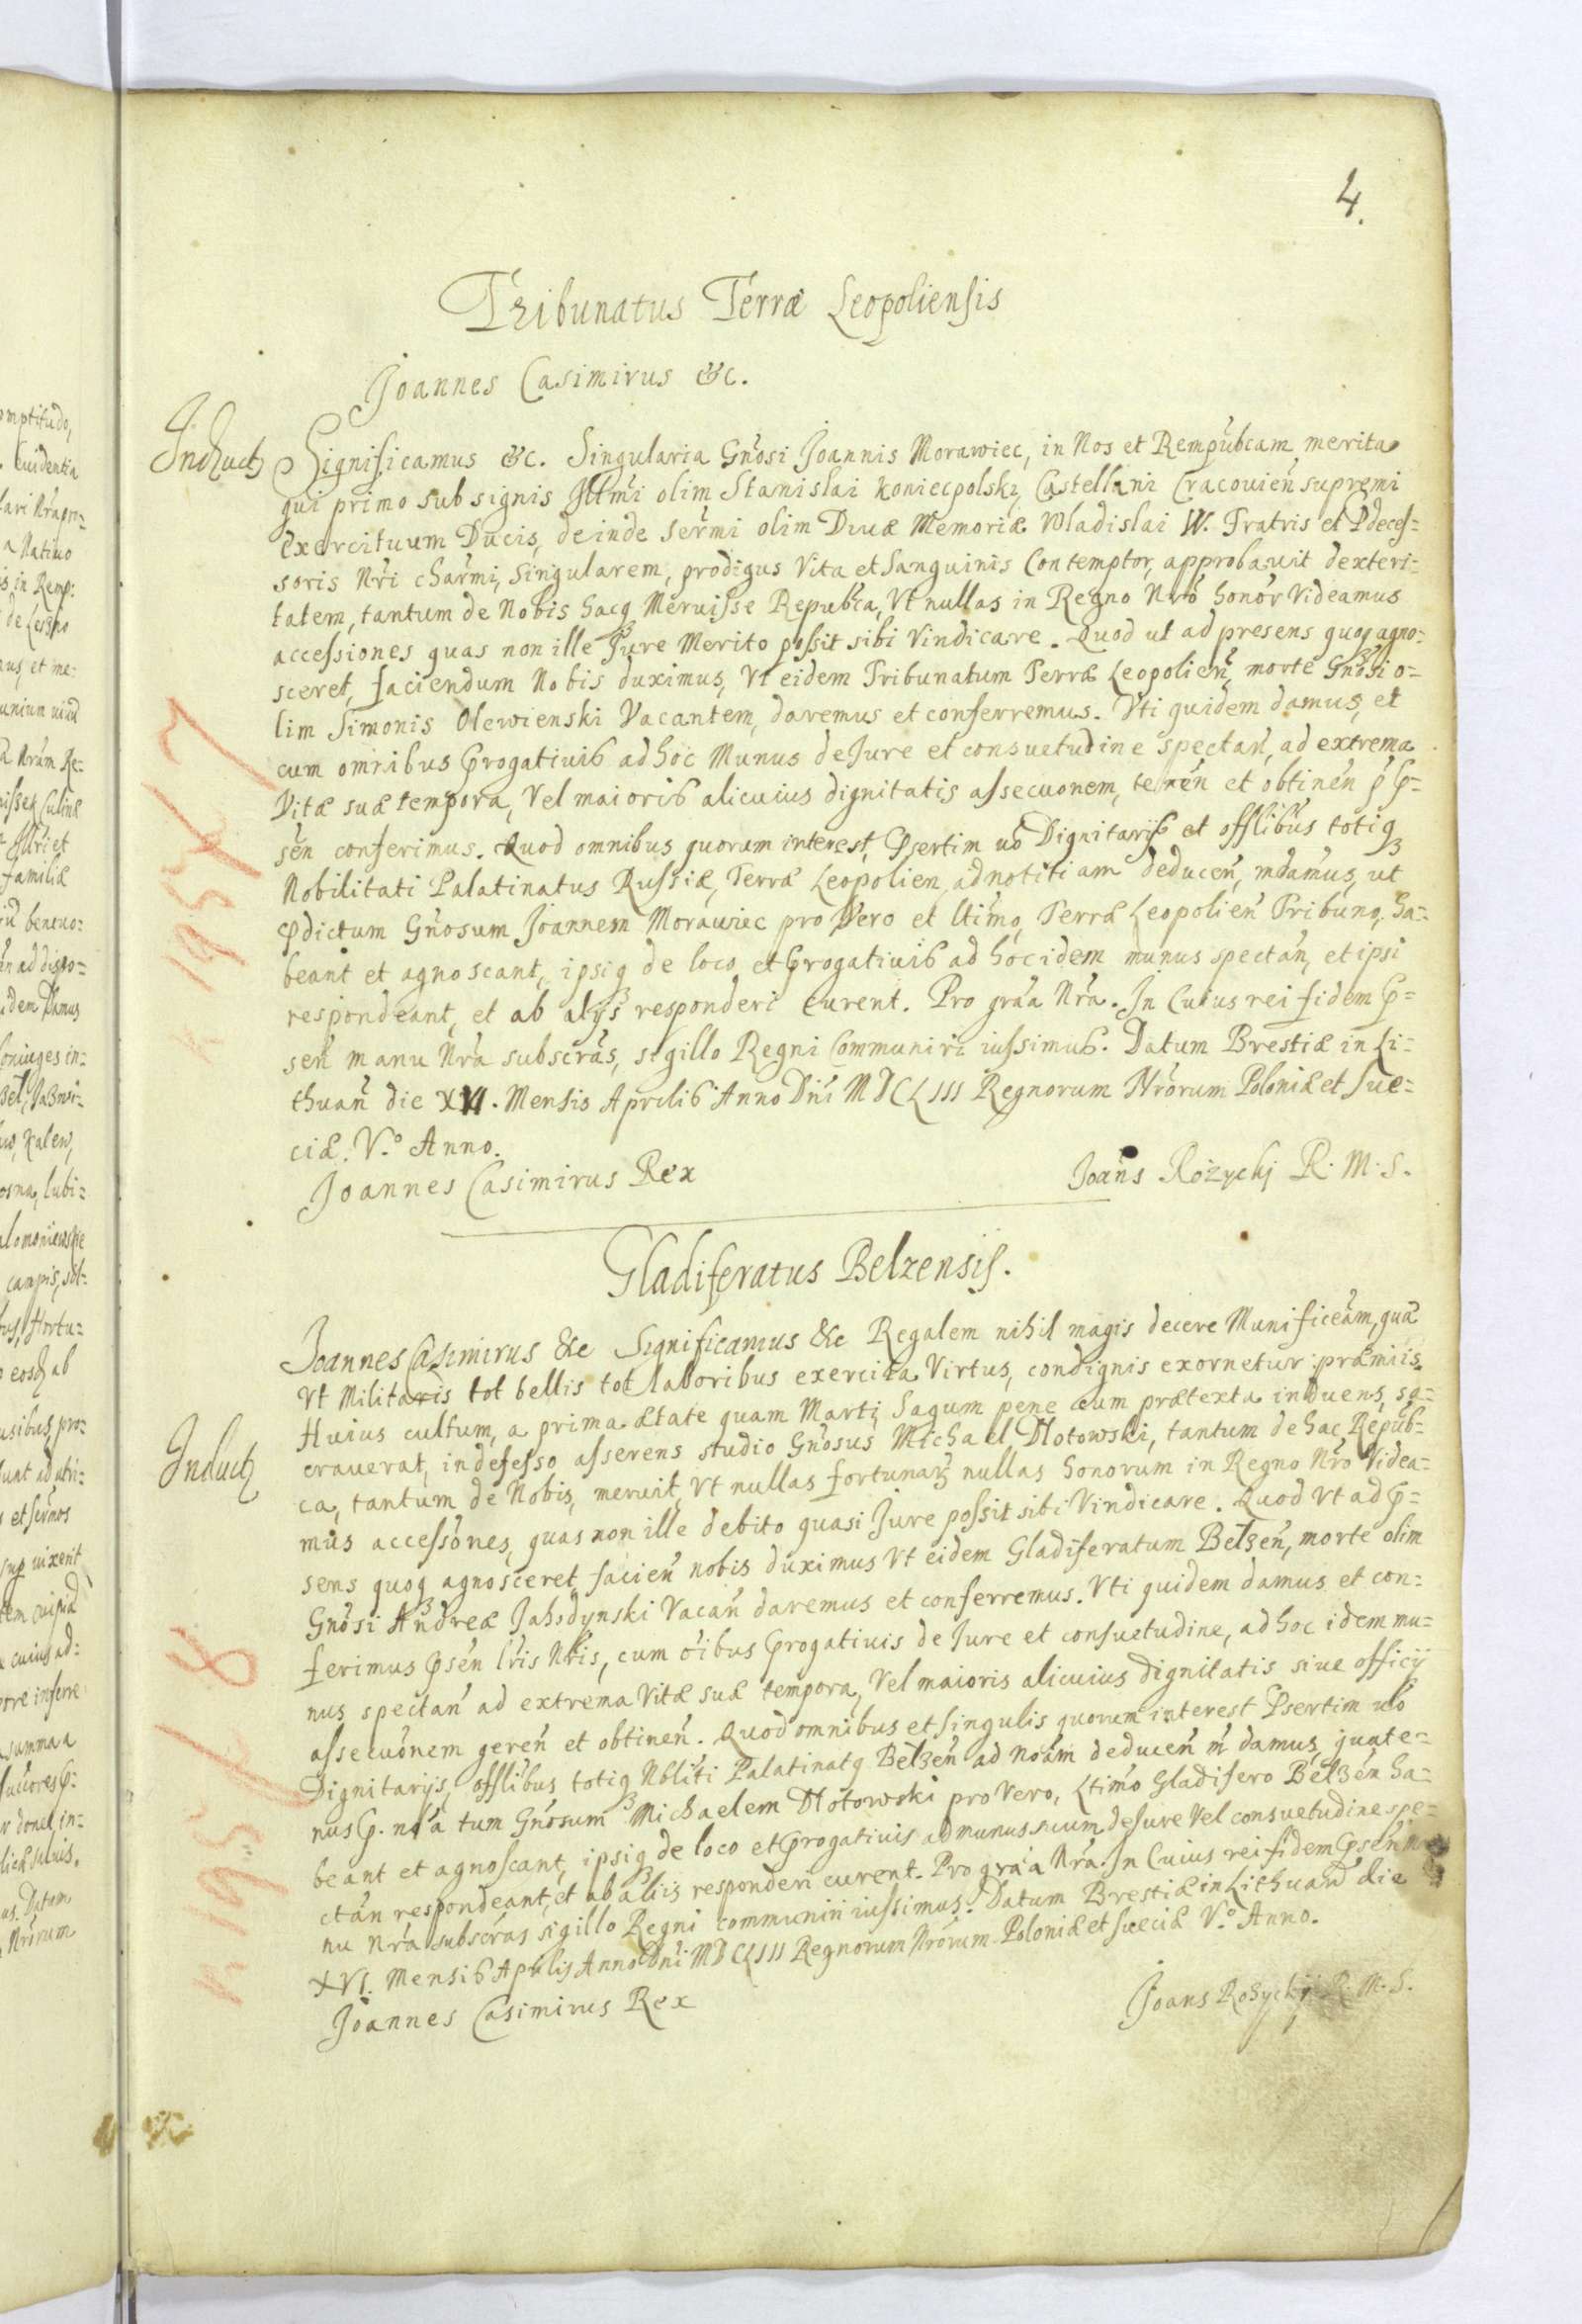 4.
Tribunatus Terræ Leopoliensis
Joannes Casimirus &c.
Inductʒ
Significamus &c. Singularia Gnosi Joannis Morawiec, in Nos et Rempubcam merita
qui primo sub signis Illmi olim Stanislai Koniecpolski, Castellani Cracouien supremi
exercituum Ducis, deinde Sermi olim Diuæ Memoriæ Vladislai IV. Fratris et Pdeces=
soris Nri charmi, singularem, prodigus Vita et Sanguinis Contemptor, approbauit dexteri=
tatem, tantum de Nobis hacq Meruisse Repubca, Vt nullas in Regno Nro honor Videamus
accessiones quas non ille Jure Merito possit sibi Vindicare. Quod ut ad presens quoq agno=
sceret, faciendum Nobis duximus, Vt eidem Tribunatum Terræ Leopolien, morte Gnosi o=
lim Simonis Olewienski Vacantem, daremus et conferremus. Vti quidem damus, et
cum omnibus Progatiuis ad hoc Munus de Jure et consuetudine spectan, ad extrema
Vitæ suæ tempora, Vel maioris alicuius dignitatis assecuonem, tenen et obtinen p P=
sen conferimus. Quod omnibus quorum interest, Psertim uo Dignitarijs et offlibus totiq
Nobilitati Palatinatus Russiæ, Terræ Leopolien, ad notitiam deducen, mdamus, ut
pdictum Gnosum Joannem Morawiec pro Vero et ltimo, Terræ Leopolien Tribuno, ha=
beant et agnoscant, ipsiq de loco et Progatiuis ad hoc idem munus spectan, et ipsi
respondeant, et ab alijs responderi curent. Pro gra'a Nra. In Cuius rei fidem P=
sen manu Nra subscras, sigillo Regni Communiri iussimus. Datum Brestiæ in Li=
thuan die XVI. Mensis Aprilis Anno Dni MDCLIII Regnorum Nrorum Poloniæ et Sue=
ciæ. V.º Anno.
Joannes Casimirus Rex
Joans Rożyckj R. M. S.
Gladiferatus Belzensis.
Joannes Casimirus &c Significamus &c Regalem nihil magis decere Munificeam, qua
Vt Militaris tot bellis tot laboribus exercita Virtus, condignis exornetur præmiis.
Inductʒ
Huius cultum, a prima ætate quam Marti, Sagum pene cum prætexta induens, sa=
crauerat, indefesso asserens studio Gnosus Michael Dlotowski, tantum de hac Repub=
ca, tantum de Nobis, meruit, Vt nullas fortunarʒ nullas honorum in Regno Nro Videa=
mus accessiones, quas non ille debito quasi Jure possit sibi Vindicare. Quod Vt ad P=
sens quoq agnosceret, facien nobis duximus Vt eidem Gladiferatum Belzen, morte olim
Gnosi Andreæ Jahodynski Vacan daremus et conferremus. Vti quidem damus et con=
ferimus psen lris Nris, cum oibus Progatiuis de Jure et consuetudine, ad hoc idem mu=
nus spectan ad extrema Vitæ suæ tempora, Vel maioris alicuius dignitatis siue officij
assecuonem geren et obtinen. Quod omnibus et singulis quorum interest Psertim uo
Dignitarijs, offlibus totiq Nbliti Palatinatq Belzen ad noam deducen m damus, quate=
nus P. no'a tum Gnosum Michaelem Dlotowski pro Vero, Ltimo Gladifero Belzen ha=
beant et agnoscant, ipsiq de loco et Progatiuis ad munus suum de Jure Vel consuetudine spe=
ctan respondeant, et ab aliis responderi curent. Pro gra'a Nra. In Cuius rei fidem Psen ma
nu Nra subscras sigillo Regni communiri iussimus. Datum Brestiæ in Lithuan die
XVI. Mensis Aprilis Anno Dni MDCLIII Regnorum Nrorum Poloniæ et Sueciæ V.º Anno.
Joannes Casimirus Rex
Joans Rożyckj R. M. S.